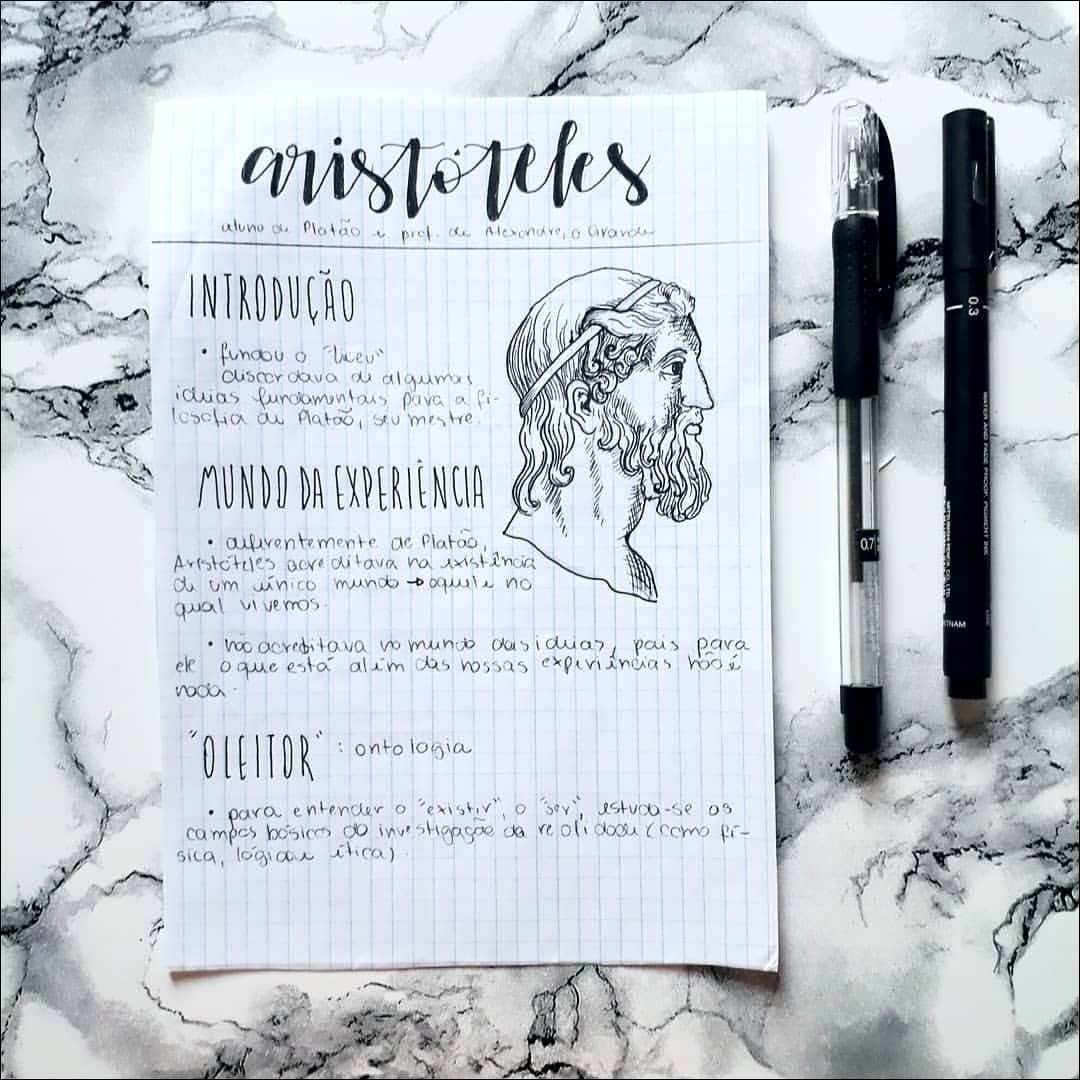 aristóteles
aluno de Platão e prof. de Alexandre, o Grande
INTRODUÇÃO
• fundou o "liceu"
discordava de algumas
ideias fundamentais para a fi-
losofia de Platão, seu mestre.
MUNDO DA EXPERIÊNCIA
• diferentemente de Platão,
Aristóteles acreditava na existência
de um único mundo → aquele no
qual vivemos.
• não acreditava no mundo das ideias, pois para
ele o que está além das nossas experiências não é
nada.
"O LEITOR" : ontologia
• para entender o "existir", o "ser", estuda-se os
campos básicos da investigação da realidade (como fí-
sica, lógica e ética).
0.7
0.3
WATER AND FADE PROOF, PIGMENT INK
VIETNAM